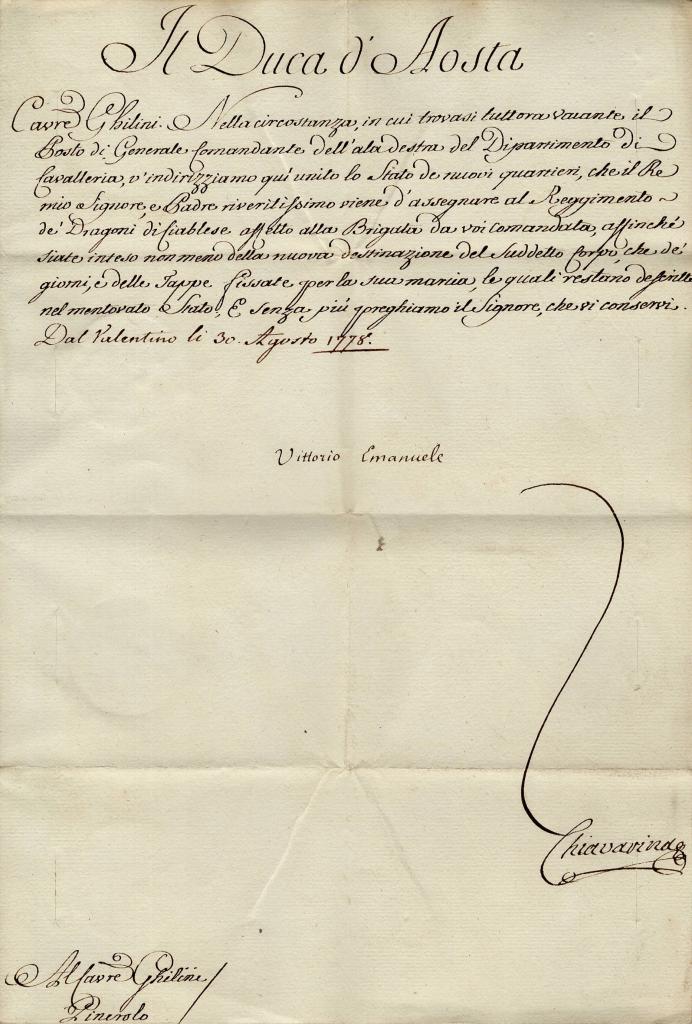 Il Duca d'Aosta
Cavre Ghilini. Nella circostanza, in cui trovasi tuttora vacante il
Posto di Generale Comandante dell'ala destra del Dipartimento di
Cavalleria, v'indirizziamo qui unito lo Stato de nuovi quartieri, che il Re
mio Signore, e Padre riveritissimo viene d'assegnare al Reggimento
de' Dragoni di Ciablese affetto alla Brigata da voi comandata, affinché
siate inteso non meno della nuova destinazione del suddetto Corpo, che de'
giorni, e delle Tappe fissate per la sua marcia, le quali restano descritte
nel mentovato Stato, E senza più preghiamo il Signore, che vi conservi.
Dal Valentino li 30. Agosto 1778.
Vittorio Emanuele
Chiavarina
Al Cavre Ghilini
Pinerolo